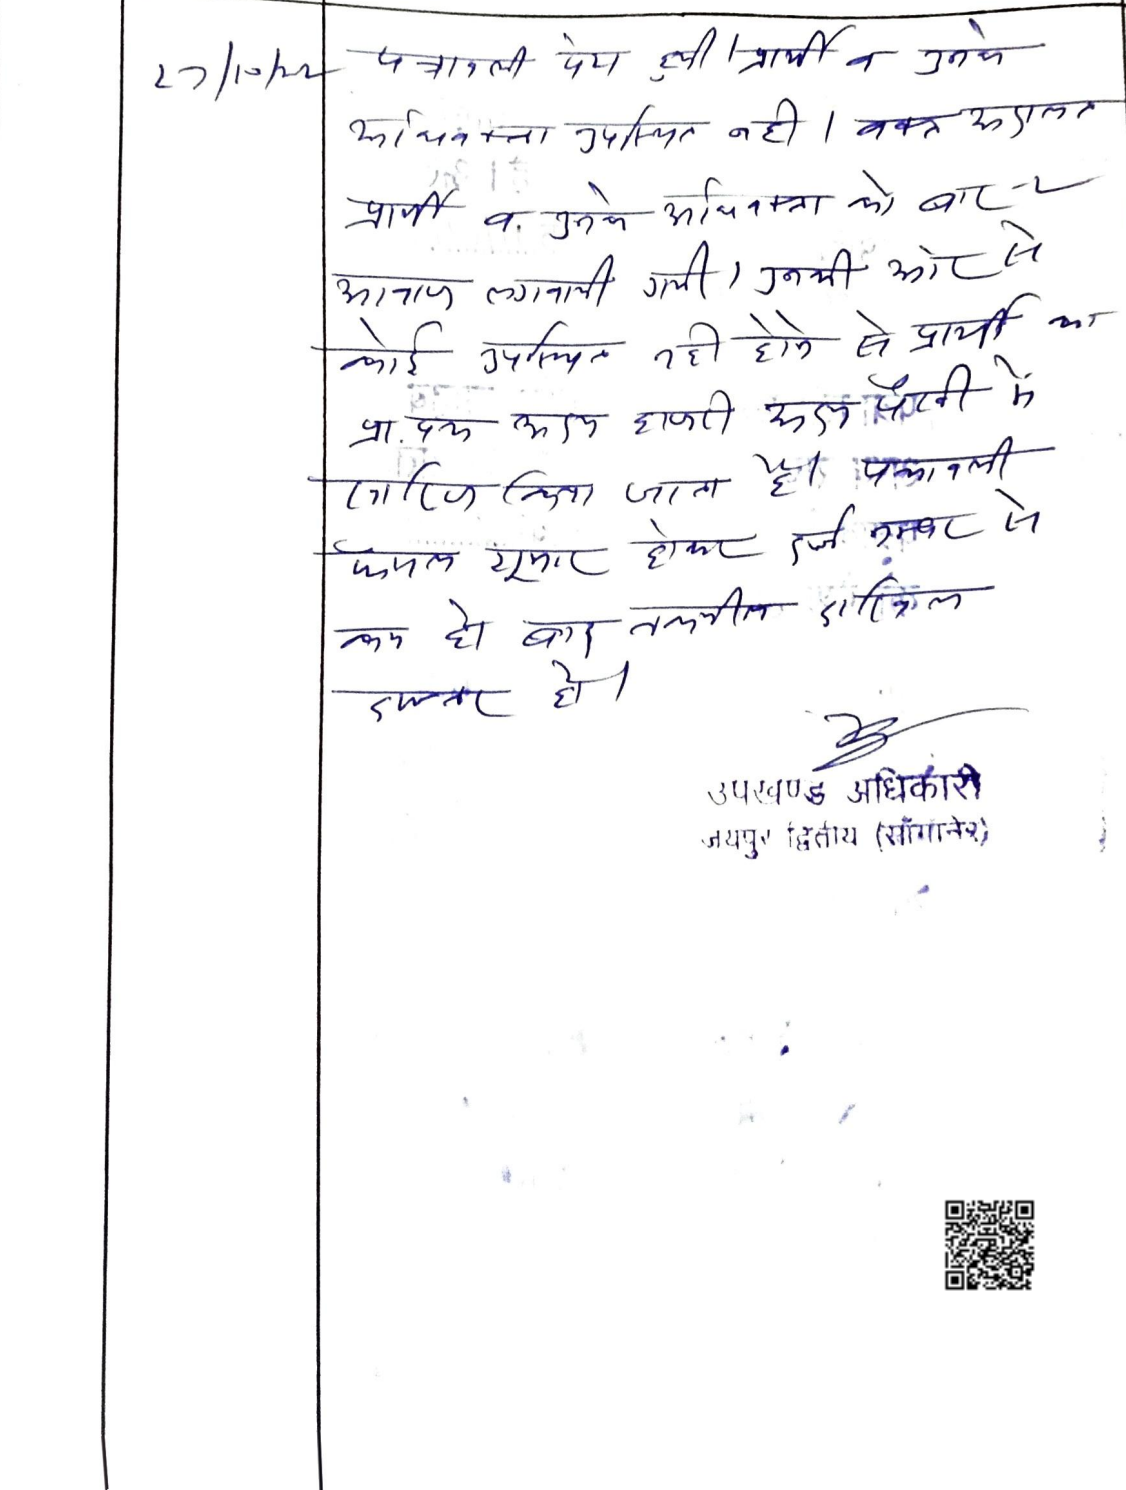 27/10/22 पत्रावली पेश हुयी। प्रार्थी व उनके
अधिवक्ता उपस्थित नही। वक्त अदालत
प्रार्थी व उनके अधिवक्ता को बार-2
आवाज लगवायी गयी। उनकी ओर से
कोई उपस्थित नही होने से प्रार्थी का
प्रा. पत्र अदम हाजरी अदम पैरवी में
खारिज किया जाता है। पत्रावली
फैसल शुमार होकर दर्ज नम्बर से
कम हो बाद तकमील दाखिल
दफ्तर हो।
उपखण्ड अधिकारी
जयपुर द्वितीय (सॉंगानेर)